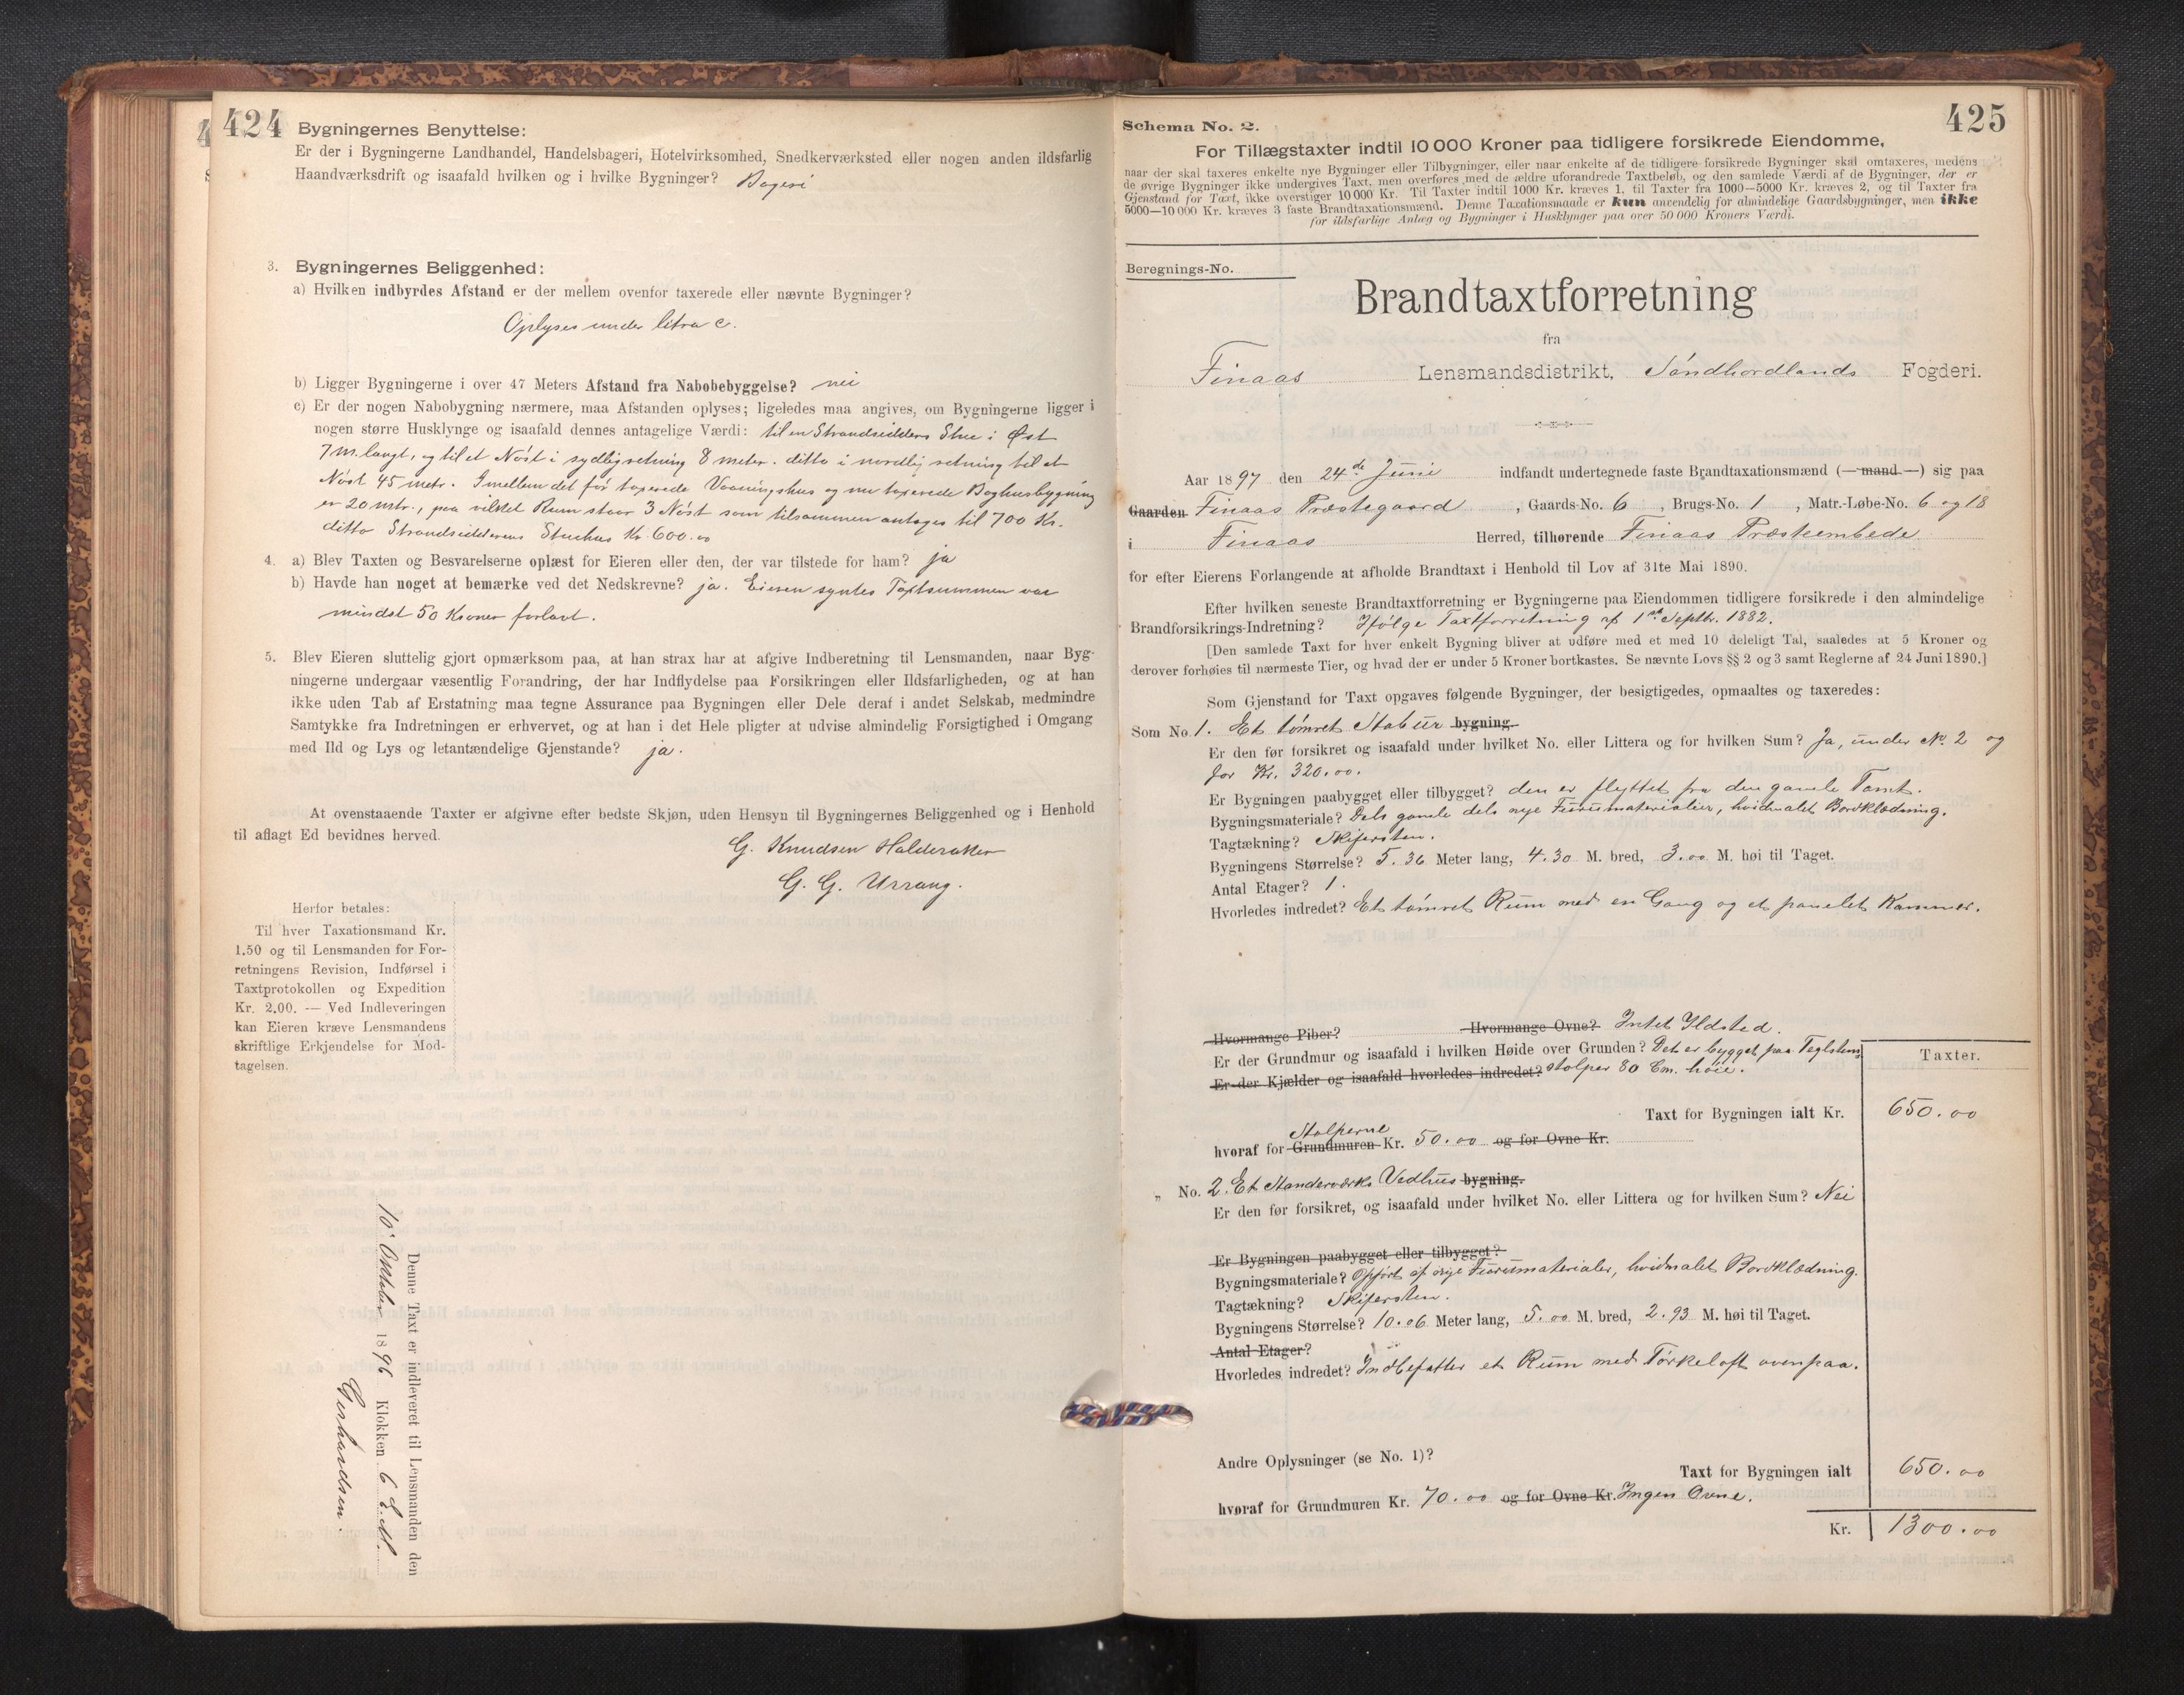 424
Bygningernes Benyttelse:
Er der i Bygningerne Landhandel, Handelsbageri, Hotelvirksomhed, Snedkerværksted eller nogen anden ildsfarlig
Haandværksdrift og isaafald hvilken og i hvilke Bygninger? Bageri
3. Bygningernes Beliggenhed:
a) Hvilken indbyrdes Afstand er der mellem ovenfor taxerede eller nævnte Bygninger?
Oplyses under litra c.
b) Ligger Bygningerne i over 47 Meters Afstand fra Nabobebyggelse? nei
c) Er der nogen Nabobygning nærmere, maa Afstanden oplyses; ligeledes maa angives, om Bygningerne ligger i
nogen større Husklynge og isaafald dennes antagelige Værdi: til en Strandsidders Stue i Øst
7 m. langt, og til et Nöst i sydlig retning 8 meter. ditto i nordlig retning til et
Nöst 45 metr. Imellem det før taxerede Vaaningshus og nu taxerede Baghusbygning
er 20 mtr., paa hvilket Rum staar 3 Nöst som tilsammen antages til 700 Kr.
ditto Strandsidderens Stuehus Kr. 600.00
4. a) Blev Taxten og Besvarelserne oplæst for Eieren eller den, der var tilstede for ham? ja
b) Havde han noget at bemærke ved det Nedskrevne? ja. Eieren syntes Taxtsummen var
mindst 50 Kroner forlavt.
5. Blev Eieren sluttelig gjort opmærksom paa, at han strax har at afgive Indberetning til Lensmanden, naar Byg-
ningerne undergaar væsentlig Forandring, der har Indflydelse paa Forsikringen eller Ildsfarligheden, og at han
ikke uden Tab af Erstatning maa tegne Assurance paa Bygningen eller Dele deraf i andet Selskab, medmindre
Samtykke fra Indretningen er erhvervet, og at han i det Hele pligter at udvise almindelig Forsigtighed i Omgang
med Ild og Lys og letantændelige Gjenstande? ja.
At ovenstaaende Taxter er afgivne efter bedste Skjøn, uden Hensyn til Bygningernes Beliggenhed og i Henhold
til aflagt Ed bevidnes herved.
G. Knudsen Halderaker
G. G. Urrang.
Herfor betales:
Til hver Taxationsmand Kr.
1.50 og til Lensmanden for For-
retningens Revision, Indførsel i
Taxtprotokollen og Expedition
Kr. 2.00. — Ved Indleveringen
kan Eieren kræve Lensmandens
skriftlige Erkjendelse for Mod-
tagelsen.
Denne Taxt er indleveret til Lensmanden den
10' Oktober 1896 Klokken 6 E.M.
Gerhardsen.
425
Schema No. 2.
For Tillægstaxter indtil 10 000 Kroner paa tidligere forsikrede Eiendomme,
naar der skal taxeres enkelte nye Bygninger eller Tilbygninger, eller naar enkelte af de tidligere forsikrede Bygninger skal omtaxeres, medens
de øvrige Bygninger ikke undergives Taxt, men overføres med de ældre uforandrede Taxtbeløb, og den samlede Værdi af de Bygninger, der er
Gjenstand for Taxt, ikke overstiger 10 000 Kr. Til Taxter indtil 1000 Kr. kræves 1, til Taxter fra 1000—5000 Kr. kræves 2, og til Taxter fra
5000—10 000 Kr. kræves 3 faste Brandtaxationsmænd. Denne Taxationsmaade er kun anvendelig for almindelige Gaardsbygninger, men ikke
for ildsfarlige Anlæg og Bygninger i Husklynger paa over 50 000 Kroners Værdi.
Beregnings-No.
Brandtaxtforretning
fra
Finaas Lensmandsdistrikt, Söndhordlands Fogderi.
Aar 1897 den 24de Juni indfandt undertegnede faste Brandtaxationsmænd (—mand—) sig paa
Gaarden Finaas Præstegaard, Gaards-No. 6, Brugs-No. 1, Matr.-Løbe-No. 6 og 18
i Finaas Herred, tilhørende Finaas Præsteembede
for efter Eierens Forlangende at afholde Brandtaxt i Henhold til Lov af 31te Mai 1890.
Efter hvilken seneste Brandtaxtforretning er Bygningerne paa Eiendommen tidligere forsikrede i den almindelige
Brandforsikrings-Indretning? Ifølge Taxtforretning af 1ste Septbr. 1882.
[Den samlede Taxt for hver enkelt Bygning bliver at udføre med et med 10 deleligt Tal, saaledes at 5 Kroner og
derover forhøies til nærmeste Tier, og hvad der er under 5 Kroner bortkastes. Se nævnte Lovs §§ 2 og 3 samt Reglerne af 24 Juni 1890.]
Som Gjenstand for Taxt opgaves følgende Bygninger, der besigtigedes, opmaaltes og taxeredes:
Som No 1. Et tömret Stabur bygning.
Er den før forsikret og isaafald under hvilket No. eller Littera og for hvilken Sum? Ja, under No. 2 og
for Kr. 320.00.
Er Bygningen paabygget eller tilbygget? den er flyttet fra den gamle Tomt.
Bygningsmateriale? Dels gamle dels nye Furumaterialier, hvidmalet Bordklædning.
Tagtækning? Skifersten.
Bygningens Størrelse? 5.36 Meter lang, 4.30 M. bred, 3.00 M. høi til Taget.
Antal Etager? 1.
Hvorledes indredet? Et tömret Rum med en Gang og et panelet Kammer.
Hvormange Piber? Hvormange Ovne? Intet Ildsted.
Er der Grundmur og isaafald i hvilken Høide over Grunden? Det er bygget paa Teglstens
Er der Kjælder og isaafald hvorledes indredet? stolper 80 Cm. höie.
Taxter.
Taxt for Bygningen ialt Kr. 650.00
Stolperne
hvoraf for Grundmuren Kr. 50.00 og for Ovne Kr.
„ No. 2. Et Standerværks Vedhus bygning.
Er den før forsikret, og isaafald under hvilket No. eller Littera og for hvilken Sum? Nei
Er Bygningen paabygget eller tilbygget?
Bygningsmateriale? Opført af nye Furumaterialer, hvidmalet Bordklædning.
Tagtækning? Skifersten.
Bygningens Størrelse? 10.06 Meter lang, 5.00 M. bred, 2.93 M. høi til Taget.
Antal Etager?
Hvorledes indredet? Indbefatter et Rum med Törkeloft ovenpaa.
Andre Oplysninger (se No. 1)?
Taxt for Bygningen ialt 650.00
hvoraf for Grundmuren Kr. 70.00 og for Ovne Kr. Ingen Ovne.
Kr. 1300.00